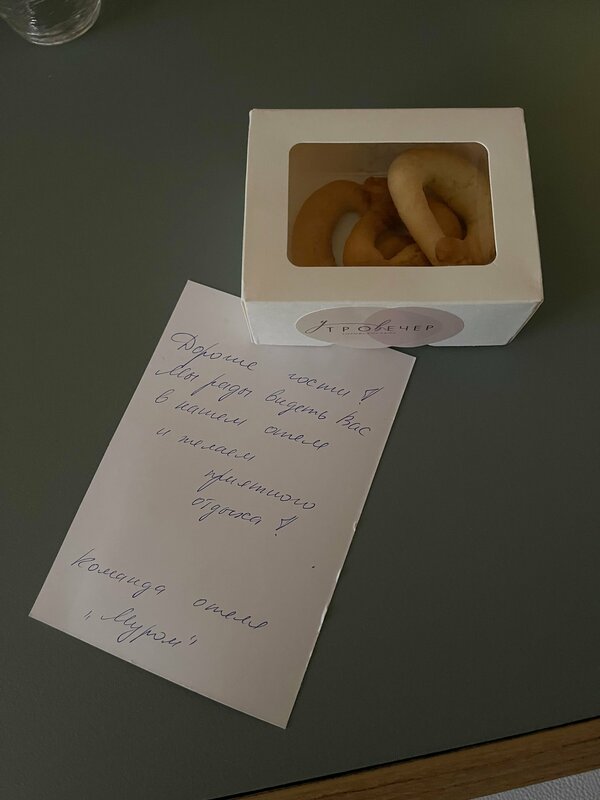 утровечер
Дорогие гости!
Мы рады видеть Вас
в нашем отеле
и желаем
приятного
отдыха!
Команда отеля
"Муром"